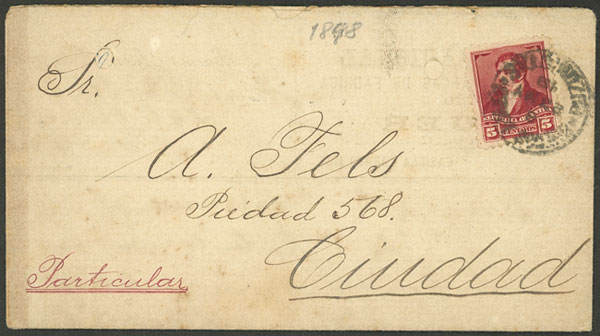 1898
Sr.
REPUBLICA ARGENTINA
5 CENTAVOS 5
A. Fels
Piedad 568.
Ciudad
Particular